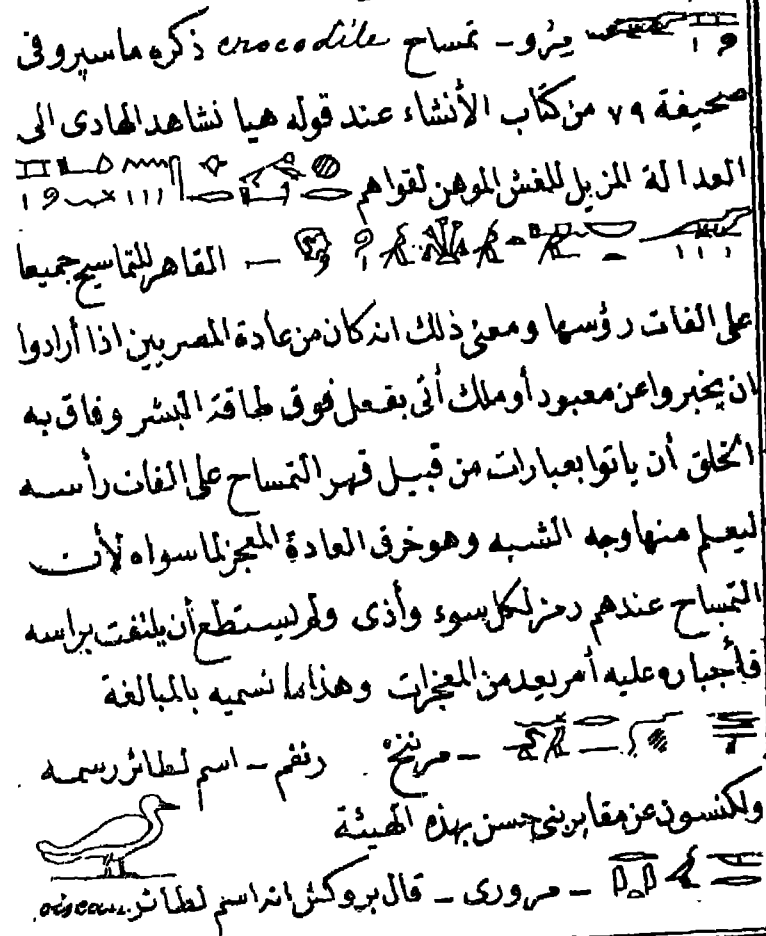 يزو - تمساح crocodile ذكره ماسپرو فى
صحيفة ٧٩ من كتاب الأنشاء عند قوله هيا نشاهد الهادى الى
العدالة المزيل للغش الموهن لقواهم
— القاهر للتماسيح جميعا
على الفات رؤسها ومعنى ذلك انه كان من عادة المصريين اذا أرادوا
ان يخبروا عن معبود أو ملك أتى بفعل فوق طاقة البشر وفاق به
الخلق أن ياتوا بعبارات من قبيل قهر التمساح على الفات رأسه
ليعلم منها وجه الشبه وهو خرق العادة المعجز لما سواه لأن
التمساح عندهم رمز لكل سوء وأذى ولم يستطع أن يلتفت براسه
فأجباره عليه أمر يعد من المعجزات وهذا ما نسميه بالمبالغة
- رنفم - اسم لطائر رسمه
ولكنسون عن مقابر بنى حسن بهذه الهيئة
- مرورى - قال بروكش انه اسم لطائر oiseau.